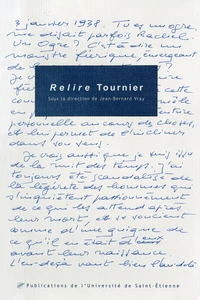 3 janvier 1938. Tu es un ogre,
me disait parfois Rachel.
Un Ogre ? C'est-à-dire un
monstre féerique, émergeant
Relire Tournier
Sous la direction de Jean-Bernard Vray
personnelle au cours des choses,
et lui permet de l'incliner
dans son sens.
Je crois aussi que je suis issu
de la nuit des temps. J'ai
toujours été scandalisé de
la légèreté des hommes qui
s'inquiètent passionnément
de ce qui les attend après
leur mort, et se soucient
comme d'une guigne de
ce qu'il en était d'eux
avant leur naissance.
L'en-deçà vaut bien l'au-delà
Publications de l'Université de Saint-Étienne